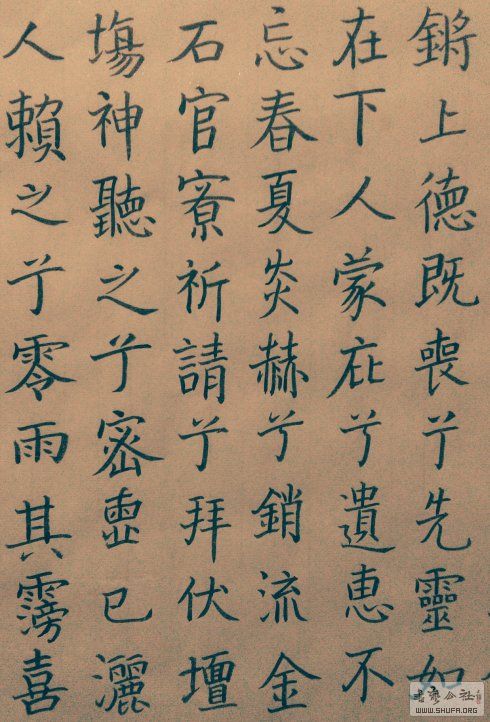 鏘上德既喪兮先靈如
在下人蒙庇兮遺惠不
忘春夏炎赫兮銷流金
石官寮祈請兮拜伏壇
塲神聽之兮密已灑
人賴之兮零雨其霶喜
WWW.SHUFA.ORG